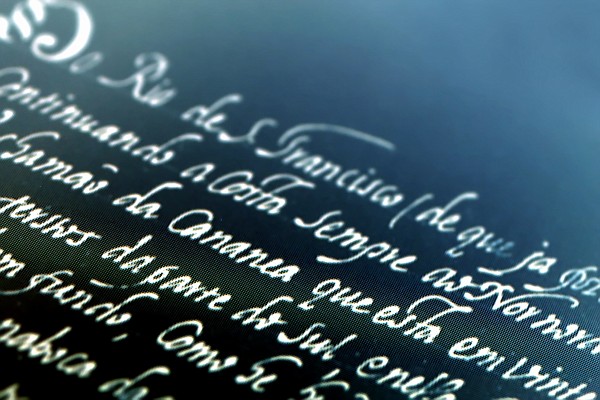 Do Rio de S. Francisco (de que ja
Continuando a Costa sempre ao
chamão da Cananea que esta em vinte
da parte do sul, e nesta
fundo, Como se